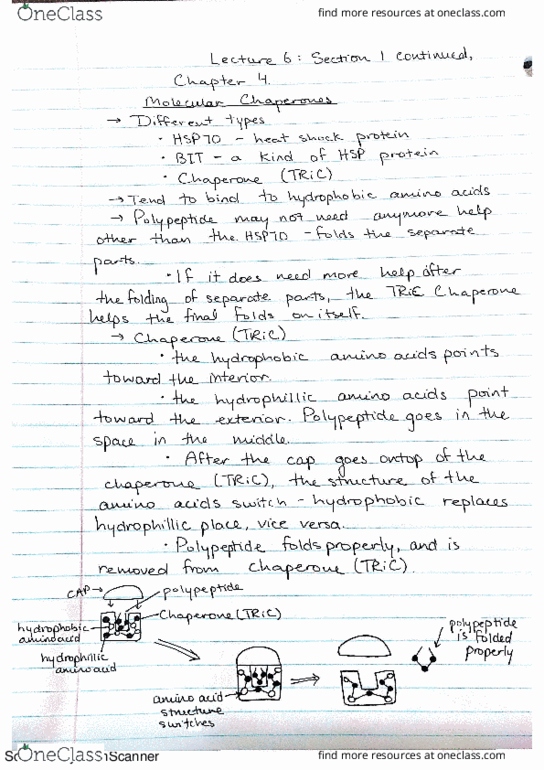 OneClass
find more resources at oneclass.com
Lecture 6: Section 1 continued,
Chapter 4.
Molecular Chaperones
→ Different types
• HSP70 - heat shock protein
• BIT - a kind of HSP protein
• Chaperone (TRiC)
→ Tend to bind to hydrophobic amino acids
→ Polypeptide may not need anymore help
other than the HSP70 - folds the separate
parts.
• If it does need more help after
the folding of separate parts, the TRiC Chaperone
helps the final folds on itself.
→ Chaperone (TRiC)
• the hydrophobic amino acids points
toward the interior.
• the hydrophillic amino acids point
toward the exterior. Polypeptide goes in the
space in the middle.
• After the cap goes ontop of the
chaperone (TRiC), the structure of the
amino acids switch - hydrophobic replaces
hydrophillic place, vice versa.
• Polypeptide folds properly, and is
removed from chaperone (TRiC).
CAP
polypeptide
Chaperone (TRiC)
hydrophobic
amino acid
hydrophillic
amino acid
amino acid
structure
switches
polypeptide
is folded
properly
OneClass
Scanner
find more resources at oneclass.com